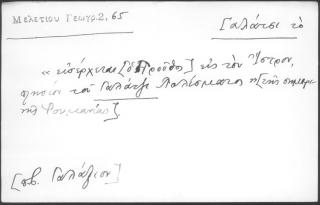 Μελετίου Γεωγρ. 2, 65
Γαλάτσι τὸ
« εἰσέρχεται [ὁ Προῦθος] εἰς τὸν Ἴστρον,
πλησίον τοῦ Γαλάτζι Πολίσματος [τῆς σημερι-
νῆς Ρουμανίας].
[πβ. Γαλάζιον]